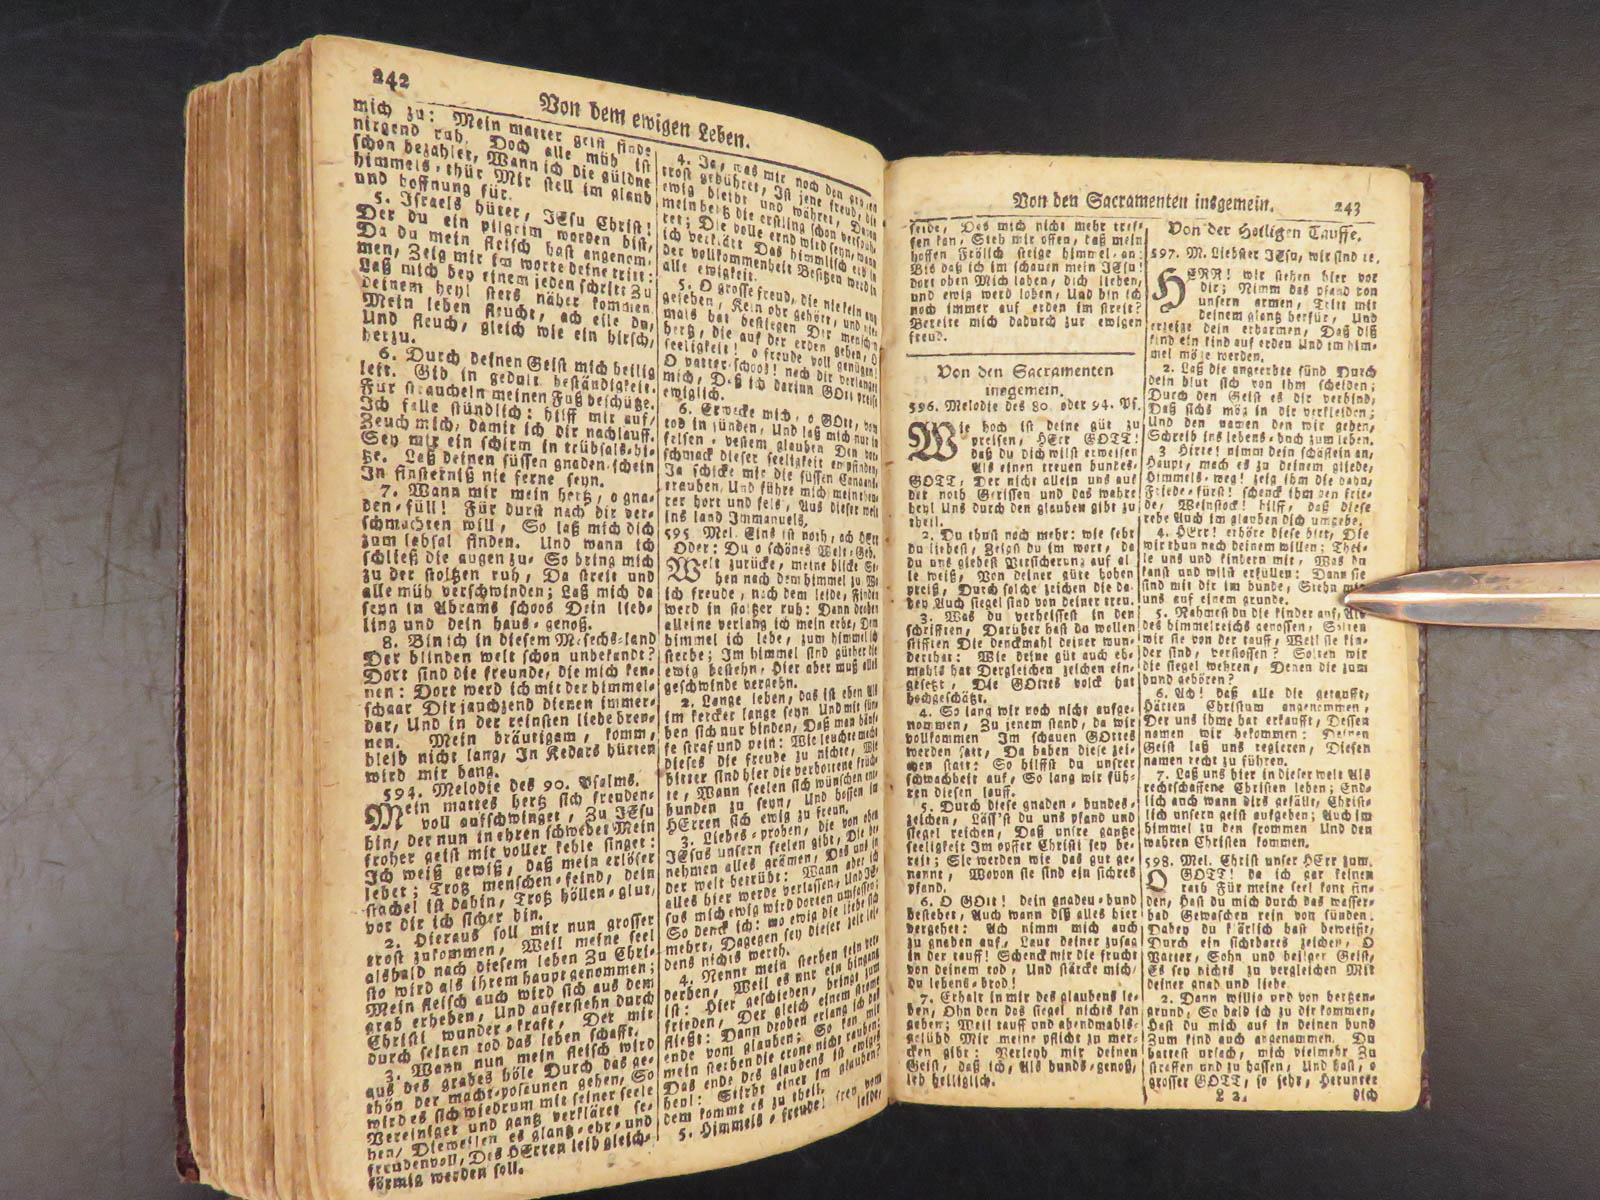 242
Von dem ewigen Leben.
mich zu: Mein matter geist finde
nirgend ruh. Doch alle müh ist
schon bezahlet, Wann ich die güldne
himmels-thür Mir stell im glaub
und hoffnung für.
5. Israels hüter, JEsu Christ!
Der du ein pilgrim worden bist,
Da du mein fleisch hast angenom-
men, Zeig mir im worte deine tritt:
Laß mich bey einem jeden schritt Zu
deinem heyl stets näher kommen.
Mein leben fleucht, ach eile du,
Und fleuch, gleich wie ein hirsch,
herzu.
6. Durch deinen Geist mich heilig
leit. Gib in gedult beständigkeit.
Für straucheln meinen Fuß beschütze.
Ich falle stündlich: hilff mir auf,
Zeuch mich, damit ich dir nachlauff.
Sey mir ein schirm in trübsals-hi-
tze. Laß deinen süssen gnaden-schein
In finsterniß nie ferne seyn.
7. Wann mir mein hertz, o gna-
den-füll! Für durst nach dir ver-
schmachten will, So laß mich dich
zum labsal finden. Und wann ich
schließ die augen zu, So bring mich
zu der stoltzen ruh, Da streit und
alle müh verschwinden; Laß mich da
seyn in Abrams schoos Dein lieb-
ling und dein haus-genoß.
8. Bin ich in diesem Mesechs-land
Der blinden welt schon unbekandt?
Dort sind die freunde, die mich ken-
nen: Dort werd ich mit der himmel-
schaar Dir jauchzend dienen immer-
dar, Und in der reinsten liebe bren-
nen. Mein bräutigam, komm,
bleib nicht lang, In Kedars hütten
wird mir bang.
594. Melodie des 90. Psalms.
Mein mattes hertz sich freuden-
voll aufschwinget, Zu JEsu
hin, der nun in ehren schwebet Mein
froher geist mit voller kehle singet:
Ich weiß gewiß, daß mein erlöser
lebet; Trotz menschen-feind, dein
stachel ist dahin, Trotz höllen-glut,
vor dir ich sicher bin.
2. Hieraus soll mir nun grosser
trost zukommen, Weil meine seel
alsbald nach diesem leben Zu Chri-
sto wird als ihrem haupt genommen;
Mein fleisch auch wird sich aus dem
grab erheben, Und auferstehn durch
Christi wunder-kraft, Der mit
durch seinen tod das leben schafft.
3. Wann nun mein fleisch wird
aus des grabes höle Durch das ge-
thön der macht-posaunen gehen, So
wird es sich wiedrum mit seiner seele
Vereiniget und gantz verkläret se-
hen, Dieweilen es glantz-ehr-und
freudenvoll, Des HErren leib gleich-
förmig werden soll.
4. Ja, was mir noch den
trost gebühret, Ist jene freud, die
ewig bleibt und währet, Daran
mein hertz die erstling schon
ret; Die volle ernd wird seyn, wann
ich verklärt Das himmlisch erb in
der vollkommenheit Besitzen werd in
alle ewigkeit.
5. O grosse freud, die nie kein aug
gesehen, Kein ohr gehört, und
mals hat bestiegen Der menschen
hertz, die auf der erden gehen, O
seeligkeit! o freude voll genügen!
O vatter-schoos! nach dir verlanget
mich, Daß ich darinn GOtt preise
ewiglich.
6. Erwecke mich, o GOtt, vom
tod in sünden, Und laß mich nur in
felsen-vestem glauben Den vor-
schmack dieser seeligkeit empfinden,
Ja schicke mir die süssen Canaans-
trauben, Und führe mich mein theu-
rer hort und fels, Aus dieser welt
ins land Immanuels.
595 Mel. Eins ist noth, ach HErr
Oder: Du o schönes Welt-Geb.
Welt zurücke, meine blicke Ge-
hen nach dem himmel zu Wo
ich freude, nach dem leide, Finden
werd in stoltzer ruh: Dann droben
alleine verlang ich mein erbe, Dem
himmel ich lebe, zum himmel ich
sterbe; Im himmel sind güther die
ewig bestehn, Hier aber muß alles
geschwinde vergehn.
2. Lange leben, das ist eben Als
im kercker lange seyn Und mit sün-
ben sich nur binden, Daß man häuf-
fe straf und pein: Wie leuchte macht
dieses die freude zu nichte, Wie
bitter sind hier die verbottene früch-
te, Wann seelen sich wünschen ent-
bunden zu seyn, Und hoffen im
HErren sich ewig zu freun.
3. Liebes-proben, die von oben
JEsus unsern seelen gibt, Die be-
nehmen alles grämen, Das uns in
der welt betrübt: Wann aber ich
alles hier werde verlassen, Und JE-
sus mich ewig wird dorten umfassen;
So denck ich: wo ewig die liebe sich
mehrt, Dagegen sey dieser zeit lei-
dens nichts werth.
4. Nennt mein sterben kein ver-
derben, Weil es nur ein hingang
ist: Hier geschieden, bringt zum
frieden, Der gleich einem strome
fließt: Dann droben erlang ich das
ende vom glauben; So kan mir
mein sterben die crone nicht rauben:
Das ende des glaubens ist ewiges
heyl: Stirbt einer im glauben?
dem kommt es zu theil.
5. Himmels-freude! frey vom
leide,
Von den Sacramenten insgemein.
243
leide, Das mich nicht mehr tref-
fen kan, Steh mir offen, daß mein
hoffen Frölich steige himmel-an:
Bis daß ich im schauen mein JEsu!
dort oben Mich laben, dich lieben,
und ewig werd loben, Und bin ich
noch immer auf erden im streit?
Bereite mich dadurch zur ewigen
freud.
Von den Sacramenten
insgemein.
596. Melodie des 80. oder 94. Ps.
Wie hoch ist deine güt zu
preisen, HErr GOTT!
daß du dich wilst erweisen
Als einen treuen bundes-
GOTT, Der nicht allein uns auf
der noth Gerissen und das wahre
heyl Uns durch den glauben gibt zu
theil.
2. Du thust noch mehr: wie sehr
du liebest, Zeigst du im wort, da
du uns giebest Versicherung auf al-
le weiß, Von deiner güte hohen
preiß, Durch solche zeichen die da-
bey Auch siegel sind von deiner treu.
3. Was du verheissest in den
schrifften, Darüber hast du wollen
stifften Die denckmahl deiner wun-
derthat: Wie deine güt auch eh-
mahls hat Dergleichen zeichen ein-
gesetzt, Die GOttes volck hat
hochgeschätzt.
4. So lang wir noch nicht aufge-
nommen, Zu jenem stand, da wir
vollkommen Im schauen GOttes
werden satt, Da haben diese zei-
gen statt: So hilffst du unsrer
schwachheit auf, So lang wir füh-
ren diesen lauff.
5. Durch diese gnaden-bundes-
zeichen, Läss'st du uns pfand und
siegel reichen, Daß unsre gantze
seeligkeit Im opffer Christi sey be-
reit; Sie werden wie das gut ge-
nannt, Wovon sie sind ein sichres
pfand.
6. O GOtt! dein gnaden-bund
bestehet, Auch wann diß alles hier
vergehet: Ach nimm mich auch
zu gnaden auf, Laut deiner zusag
in der tauff! Schenck mir die frucht
von deinem tod, Und stärcke mich,
du lebens-brod!
7. Erhalt in mir des glaubens le-
ben, Ohn den das siegel nichts kan
geben; Weil tauff und abendmahls-
gelübd Mir meine pflicht zu mer-
cken gibt: Verleyh mir deinen
Geist, daß ich, Als bunds-genoß,
leb heiliglich.
Von der Heiligen Tauffe.
597. M. Liebster JEsu, wir sind rc.
HERR! wir stehen hier vor
dir; Nimm das pfand von
unsern armen, Tritt mit
deinem glantz herfür, Und
erzeige dein erbarmen, Daß diß
kind ein kind auf erden Und im him-
mel möge werden.
2. Laß die angeerbte sünd Durch
dein blut sich von ihm scheiden;
Durch den Geist es dir verbind,
Daß sichs mög in dir verkleiden;
Und den namen den wir geben,
Schreib ins lebens-buch zum leben.
3 Hirte! nimm dein schäflein an,
Haupt, mach es zu deinem gliede,
Himmels-weg! zeig ihm die bahn,
Friede-fürst! schenck ihm den frie-
de, Weinstock! hilff, daß diese
rebe Auch im glauben dich umgebe.
4. HErr! erhöre diese bitt, Die
wir thun nach deinem willen; Thei-
le uns und kindern mit, Was du
kanst und wilst erfüllen: Dann sie
sind mit dir im bunde, Stehn mit
uns auf einem grunde.
5. Nahmest du die kinder auf, Als
des himmelreichs genossen, Solten
wir sie von der tauf, Weil sie kin-
der sind, verstossen? Solten wir
die siegel wehren, Denen die zum
bund gehören?
6. Ach! daß alle die getaufft,
Hätten Christum angenommen,
Der uns ihme hat erkaufft, Dessen
namen wir bekommen: Deinen
Geist laß uns regieren, Diesen
namen recht zu führen.
7. Laß uns hier in dieser welt Als
rechtschaffene Christen leben; End-
lich auch wann dirs gefällt, Christ-
lich unsern geist aufgeben; Auch im
himmel zu den frommen Und den
wahren Christen kommen.
598. Mel. Christ unser HErr zum.
O GOTT! da ich gar keinen
rath Für meine seel kont fin-
den, Hast du mich durch das wasser-
bad Gewaschen rein von sünden.
Dabey du klärlich hast beweißt,
Durch ein sichtbares zeichen, O
Vatter, Sohn und heilger Geist,
Es sey nichts zu vergleichen Mit
deiner gnad und liebe.
2. Dann willig und von hertzen-
grund, So bald ich zu dir kommen,
Hast du mich auf in deinen bund
Zum kind auch angenommen. Du
hattest ursach, mich vielmehr Zu
straffen und zu hassen, Und hast, o
grosser GOTT, so sehr, Herunter
L 2.
dich